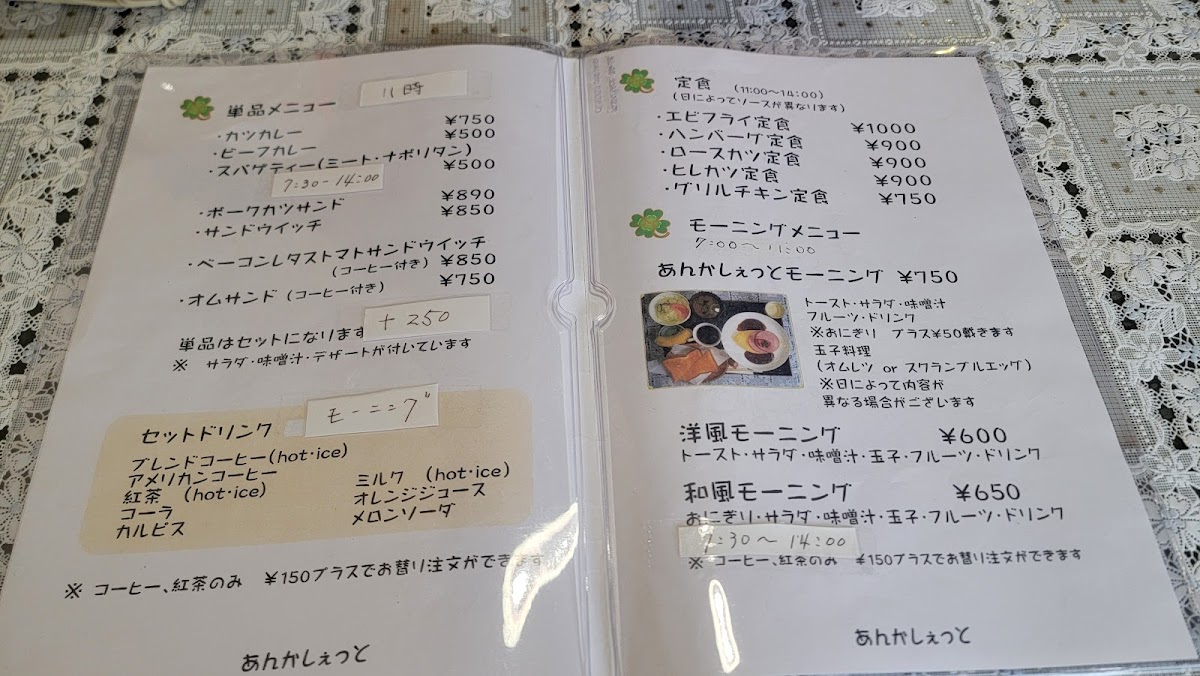 単品メニュー 11時
・カツカレー ¥750
・ビーフカレー ¥500
・スパゲティー(ミート・ナポリタン)
¥500
7:30-14:00
・ポークカツサンド ¥890
・サンドウイッチ ¥850
・ベーコンレタストマトサンドウイッチ
(コーヒー付き) ¥850
・オムサンド (コーヒー付き) ¥750
単品はセットになります +250
※ サラダ・味噌汁・デザートが付いています
モーニング
セットドリンク
ブレンドコーヒー(hot・ice)
アメリカンコーヒー
紅茶 (hot・ice)
コーラ
カルピス
ミルク (hot・ice)
オレンジジュース
メロンソーダ
※ コーヒー、紅茶のみ ¥150プラスでお替り注文ができます
あんかしぇっと
定食 (11:00~14:00)
(日によってソースが異なります)
・エビフライ定食 ¥1000
・ハンバーグ定食 ¥900
・ロースカツ定食 ¥900
・ヒレカツ定食 ¥900
・グリルチキン定食 ¥750
モーニングメニュー
7:00~11:00
あんかしぇっとモーニング ¥750
トースト・サラダ・味噌汁
フルーツ・ドリンク
※おにぎり プラス¥50戴きます
玉子料理
(オムレツ or スクランブルエッグ)
※日によって内容が
異なる場合がございます
洋風モーニング ¥600
トースト・サラダ・味噌汁・玉子・フルーツ・ドリンク
和風モーニング ¥650
おにぎり・サラダ・味噌汁・玉子・フルーツ・ドリンク
7:30~14:00
※ コーヒー、紅茶のみ ¥150プラスでお替り注文ができます
あんかしぇっと